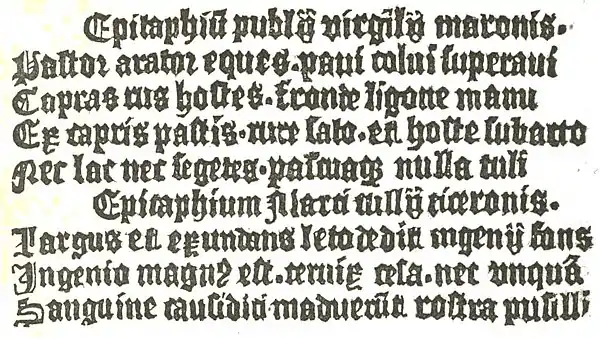 Epitaphiū publij virgilij maronis.
Pastor arator eques. paui colui superaui
Capras rus hostes. fronde ligone manu
Ex capris pastis. rure sato. et hoste subacto
Nec lac nec segetes. pascuaqȝ nulla tuli
Epitaphium Marci tullij ciceronis.
Largus et exundans leto dedit ingenij fons
Ingenio magnꝰ est. ceruix cesa. nec vnquā
Sanguine causidici maduerūt rostra pusilli